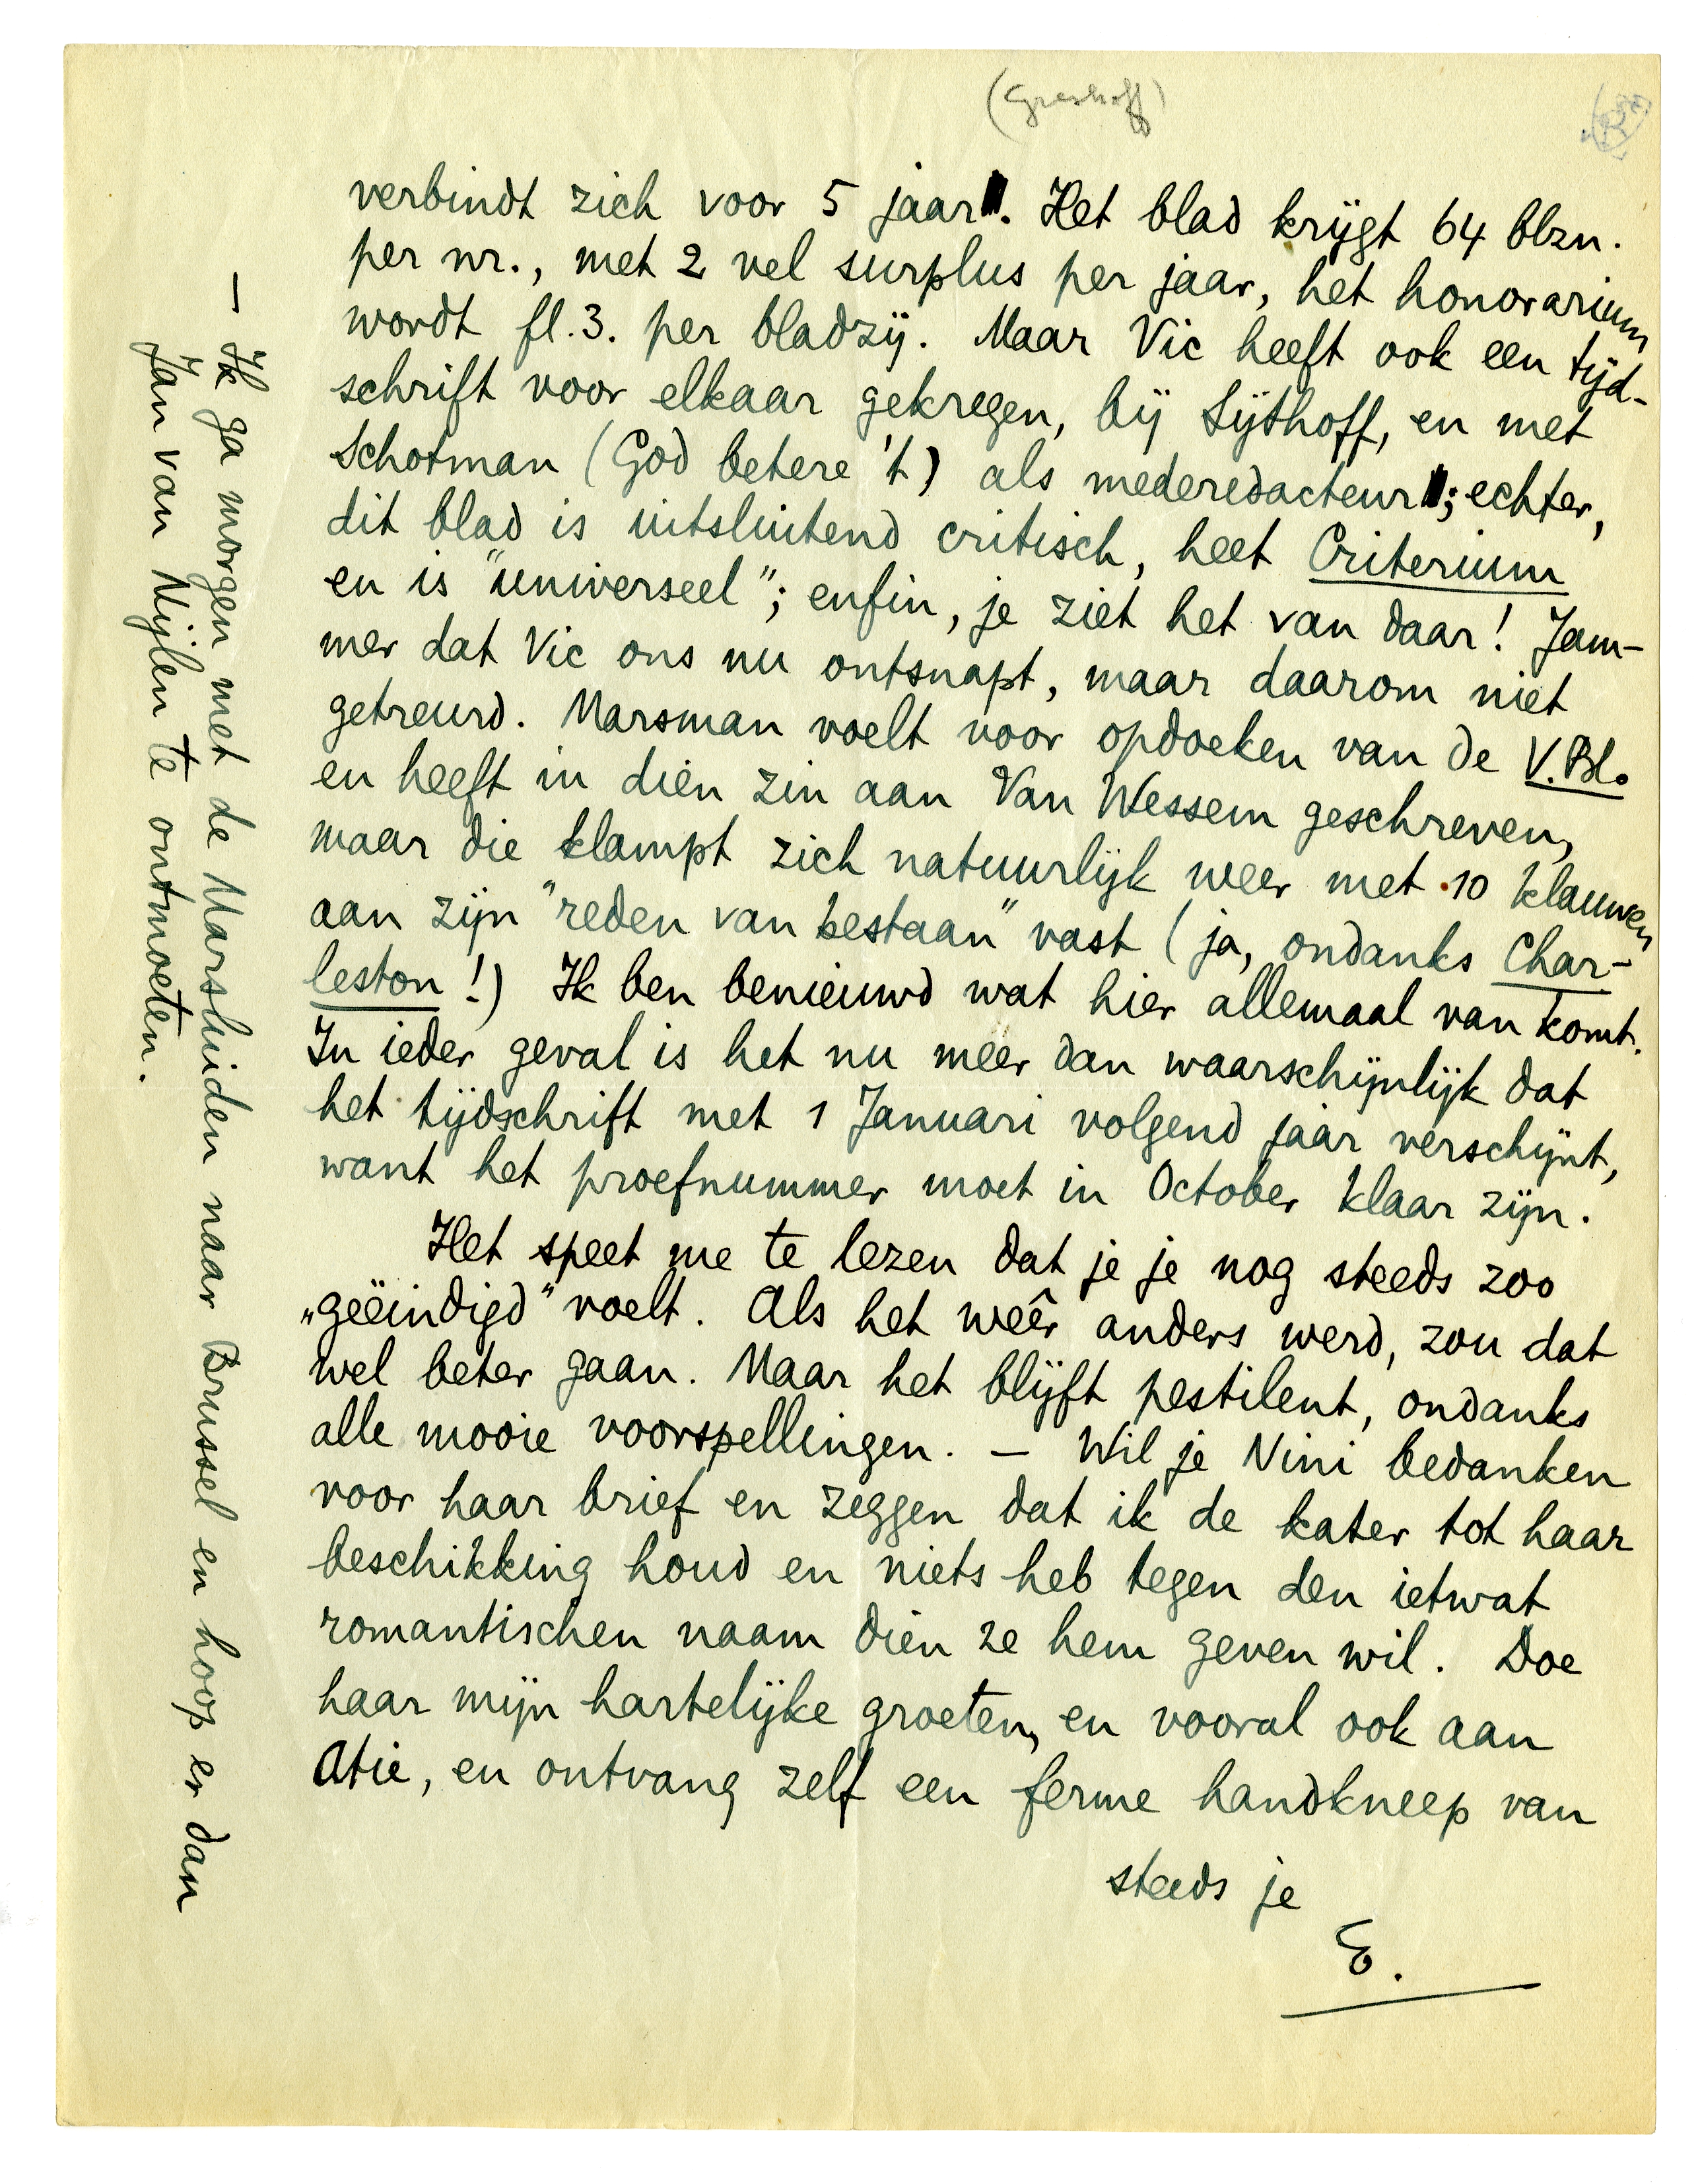 (Greshoff)
verbindt zich voor 5 jaar. Het blad krijgt 64 blzn.
per nr., met 2 vel surplus per jaar, het honorarium
wordt fl.3. per bladzij. Maar Vic heeft ook een tijd-
schrift voor elkaar gekregen, bij Sijthoff, en met
Schotman (God betere 't) als mederedacteur; echter,
dit blad is uitsluitend critisch, heet Criterium
en is "universeel"; enfin, je ziet het van daar! Jam-
mer dat Vic ons nu ontsnapt, maar daarom niet
getreurd. Marsman voelt voor opdoeken van de V.Bl.
en heeft in dien zin aan Van Wessem geschreven,
maar die klampt zich natuurlijk weer met 10 klauwen
aan zijn "reden van bestaan" vast (ja, ondanks Char-
leston!) Ik ben benieuwd wat hier allemaal van komt.
In ieder geval is het nu méér dan waarschijnlijk dat
het tijdschrift met 1 Januari volgend jaar verschijnt,
want het proefnummer moet in October klaar zijn.
Het speet me te lezen dat je je nog steeds zoo
„geëindigd" voelt. Als het weêr anders werd, zou dat
wel beter gaan. Maar het blijft pestilent, ondanks
alle mooie voorspellingen. — Wil je Nini bedanken
voor haar brief en zeggen dat ik de kater tot haar
beschikking houd en niets heb tegen den ietwat
romantischen naam dien ze hem geven wil. Doe
haar mijn hartelijke groeten, en vooral ook aan
Atie, en ontvang zelf een ferme handkneep van
steeds je
E.
— Ik ga morgen met de Marsluiden naar Brussel en hoop er dan
Jan van Nijlen te ontmoeten.